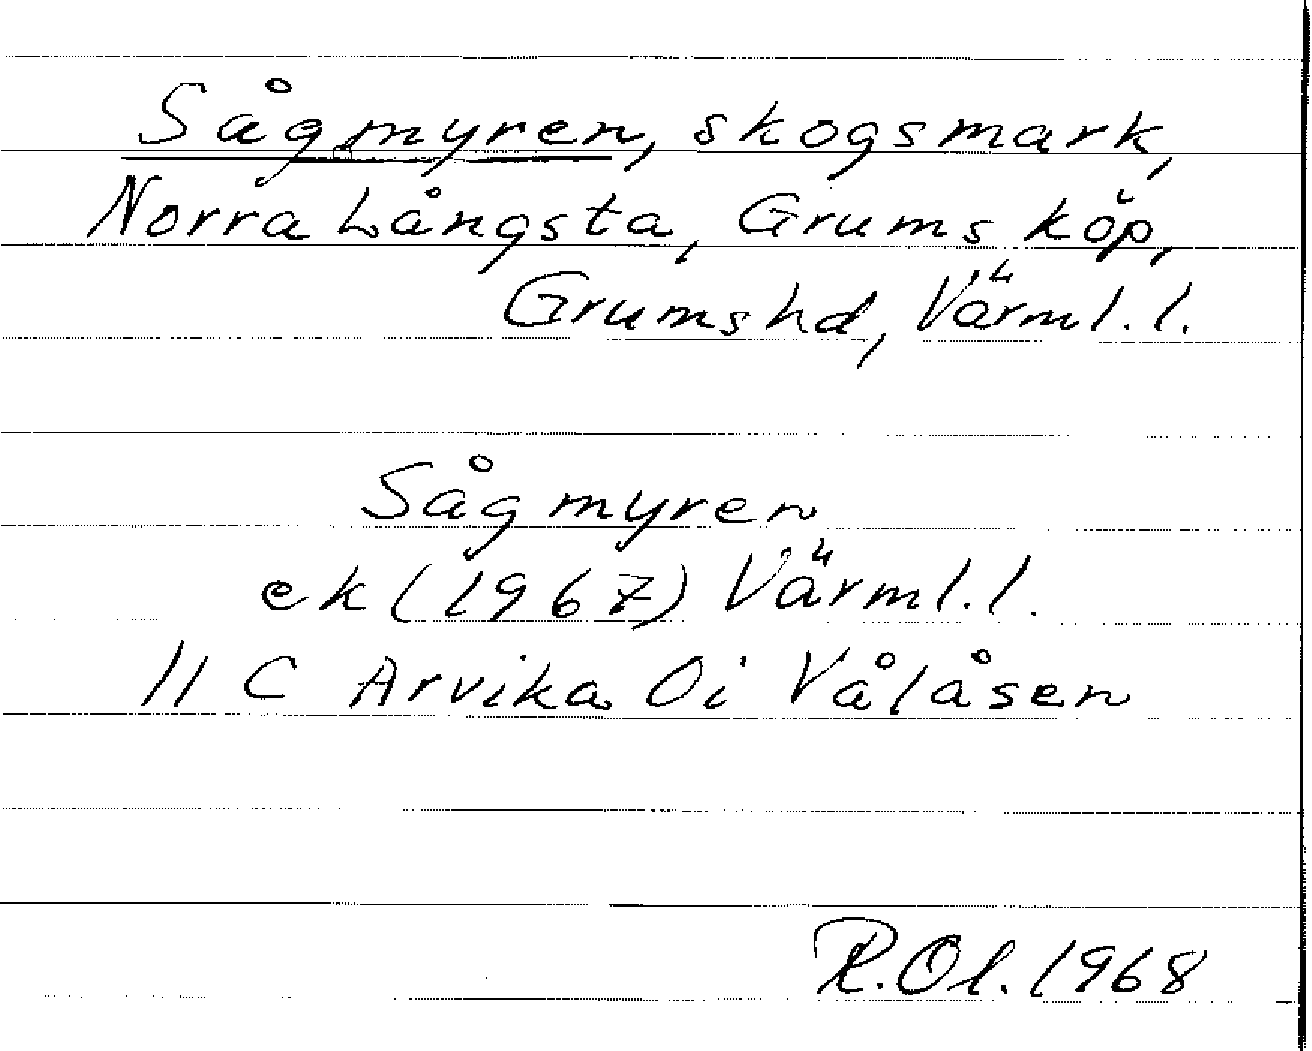 Sågmyren, skogsmark,
Norra Långsta, Grums köp,
Grumshd, Värml. l.
Sågmyren
ek (1967) Värml. l.
11 C Arvika Oi Vålåsen
R.Ol. 1968